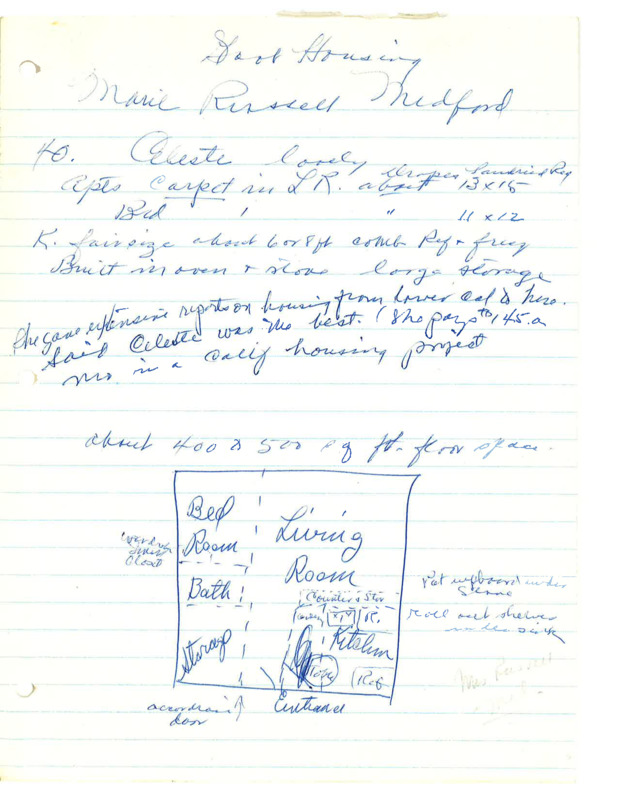 Housing
Marie Russell Medford
40. Celeste lovely drapes laundried
Apts carpet in L R. about 13 x 15
Bed ' " 11 x 12
K. fair size about 6 or 8 ft comb Ref +
Built in oven + stove large storage
She gave extensive reports on housing from Lower Cal to here.
Said Celeste was the best. (She pays $145. a
mo in a Calif housing project
about 400 to 500 sq ft. floor space.
Bed
Room
Living
Room
closet
Bath
Counter + Stor
Pot cupboard under
roll out shelves
under sink
R.
Kitchen
Storage
Ref
Mrs Russell
door
Entrance